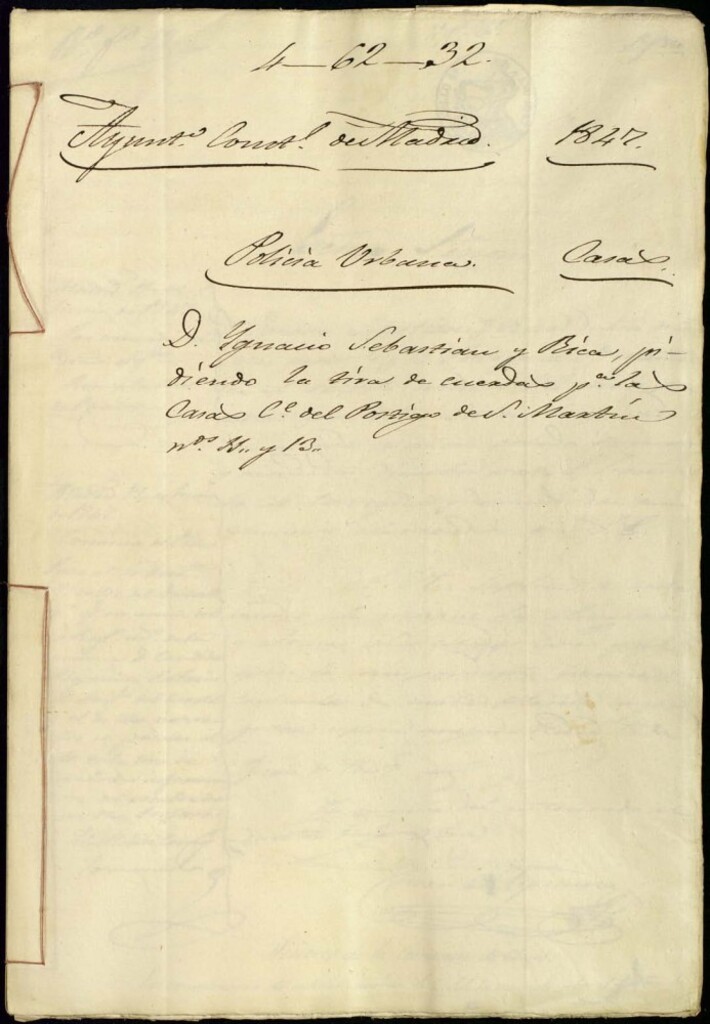 4-62-32.
Ayunt.º Const.l de Madrid. 1847.
Policia Urbana. Casas.
D. Ygnacio Sebastian y Rica, pi-
diendo la tira de cuerdas p.a las
Casas C.e del Postigo de S. Martin
n.os 11. y 13.